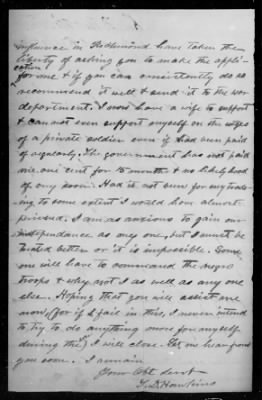 influence in Richmond have taken the
liberty of asking you to make the appli-
cation for me & if you can consistently do so
recommend it well & send it to the war
department. I now have a wife to support
& can not even support myself on the wages
of a private soldier even if I had been paid
of regularly. The government has not paid
me one cent for 15 months & no likelyhood
of any soon. Had it not been for my trade-
ing to some extent I would have almost
perished. I am as anxious to gain our
independence as any one, but I must be
treated better or it is impossible. Some
one will have to command the negro
troops & why not I as well as any one
else. Hoping that you will assist me
now, (for if I fail in this, I never intend
to try to do anything more for myself
during the) I will close. Let me hear from
you soon. I remain
Your Obt servt
Hawkins